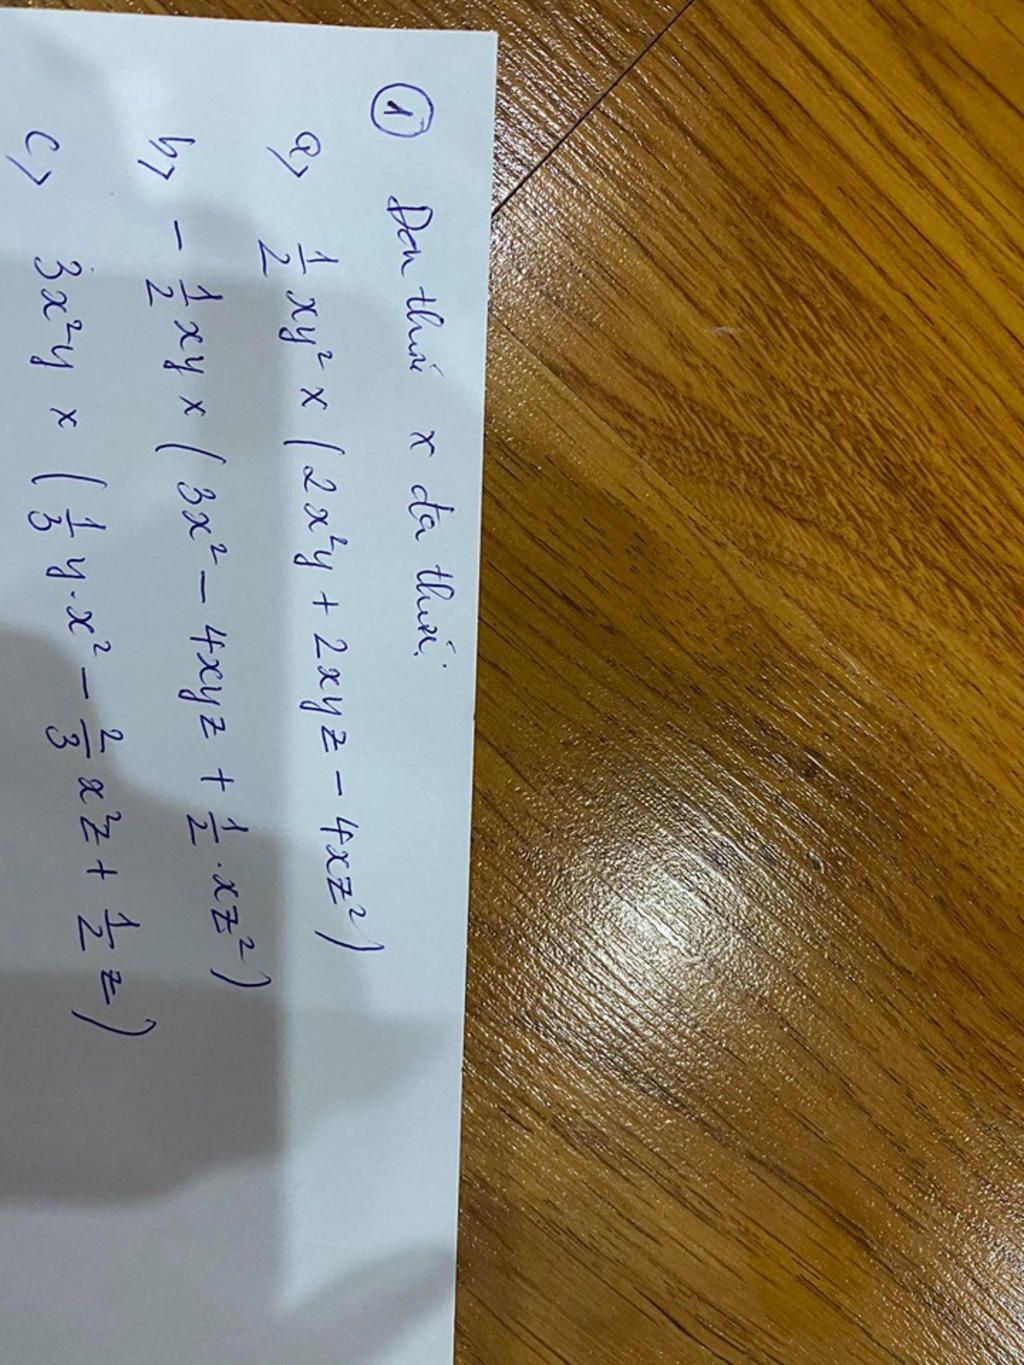 ① Đơn thức x đa thức:
a) 1/2 xy² x (2x²y + 2xyz - 4xz²)
b) - 1/2 xy x (3x² - 4xyz + 1/2 . xz²)
c) 3x²y x (1/3 y.x² - 2/3 x²z + 1/2 z)